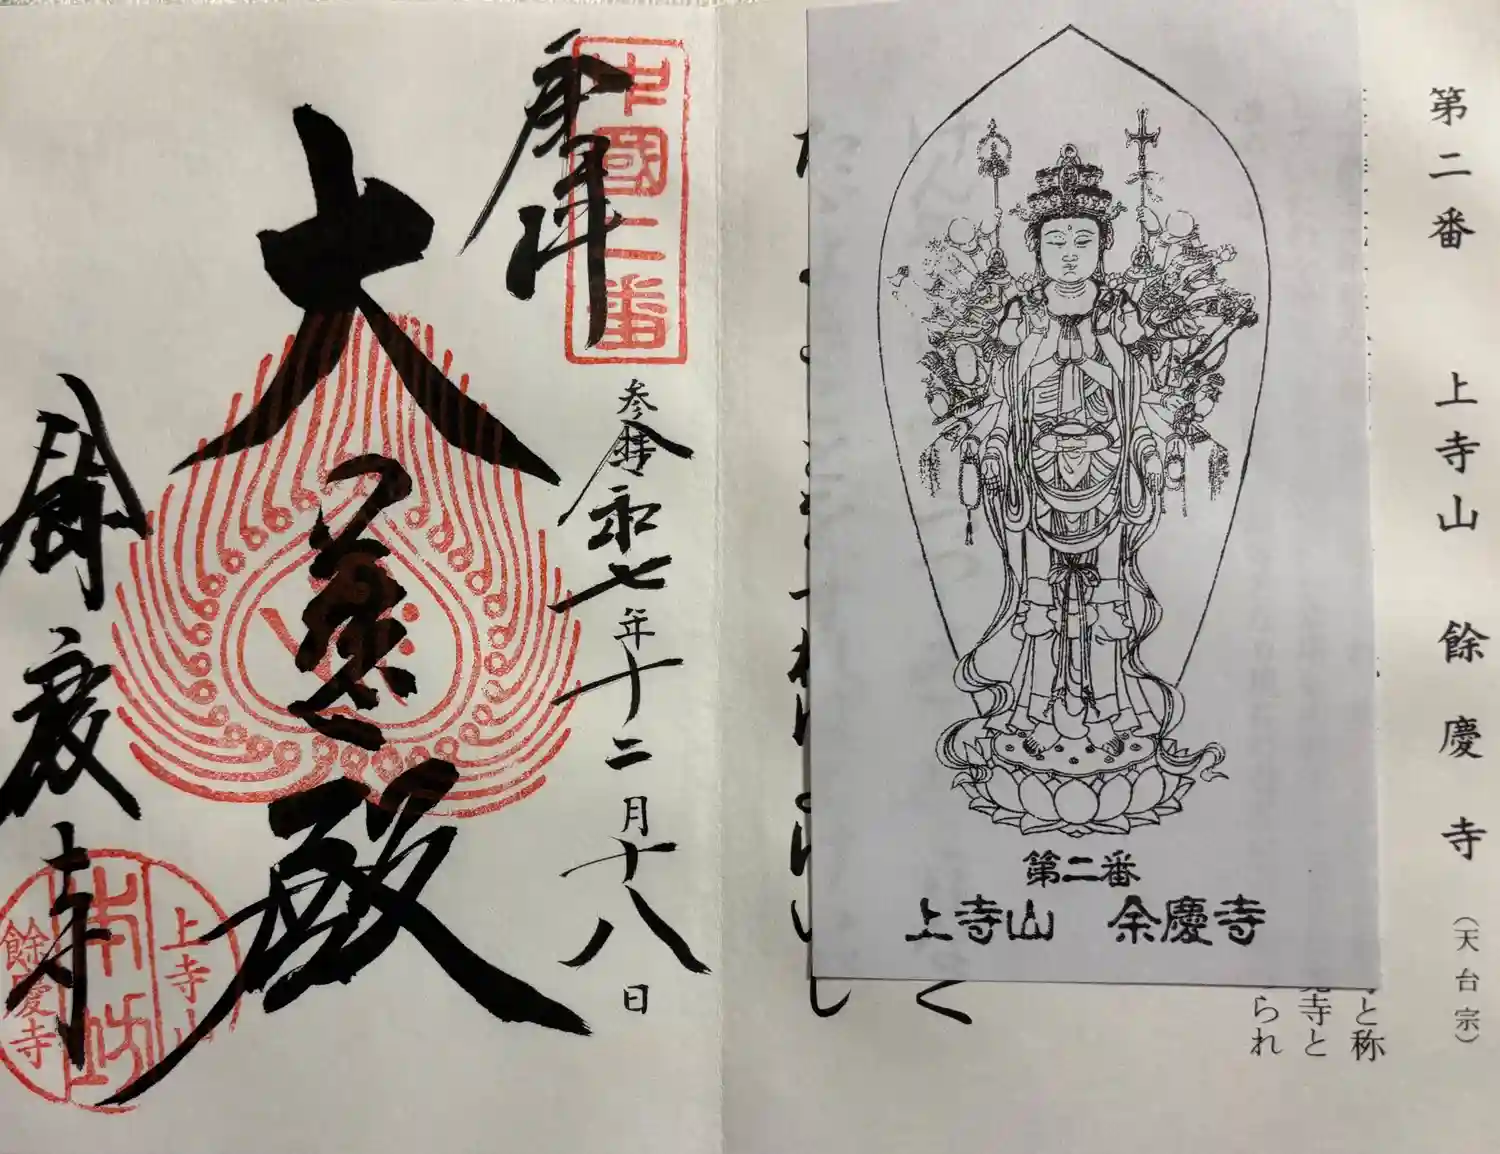 第二番 上寺山 餘慶寺 (天台宗)
と称
寺と
られ
く
第二番
上寺山 余慶寺
中國二番
奉拝
参拝 令和七年十二月十八日
大悲殿
餘慶寺
上寺山
本坊
餘慶寺